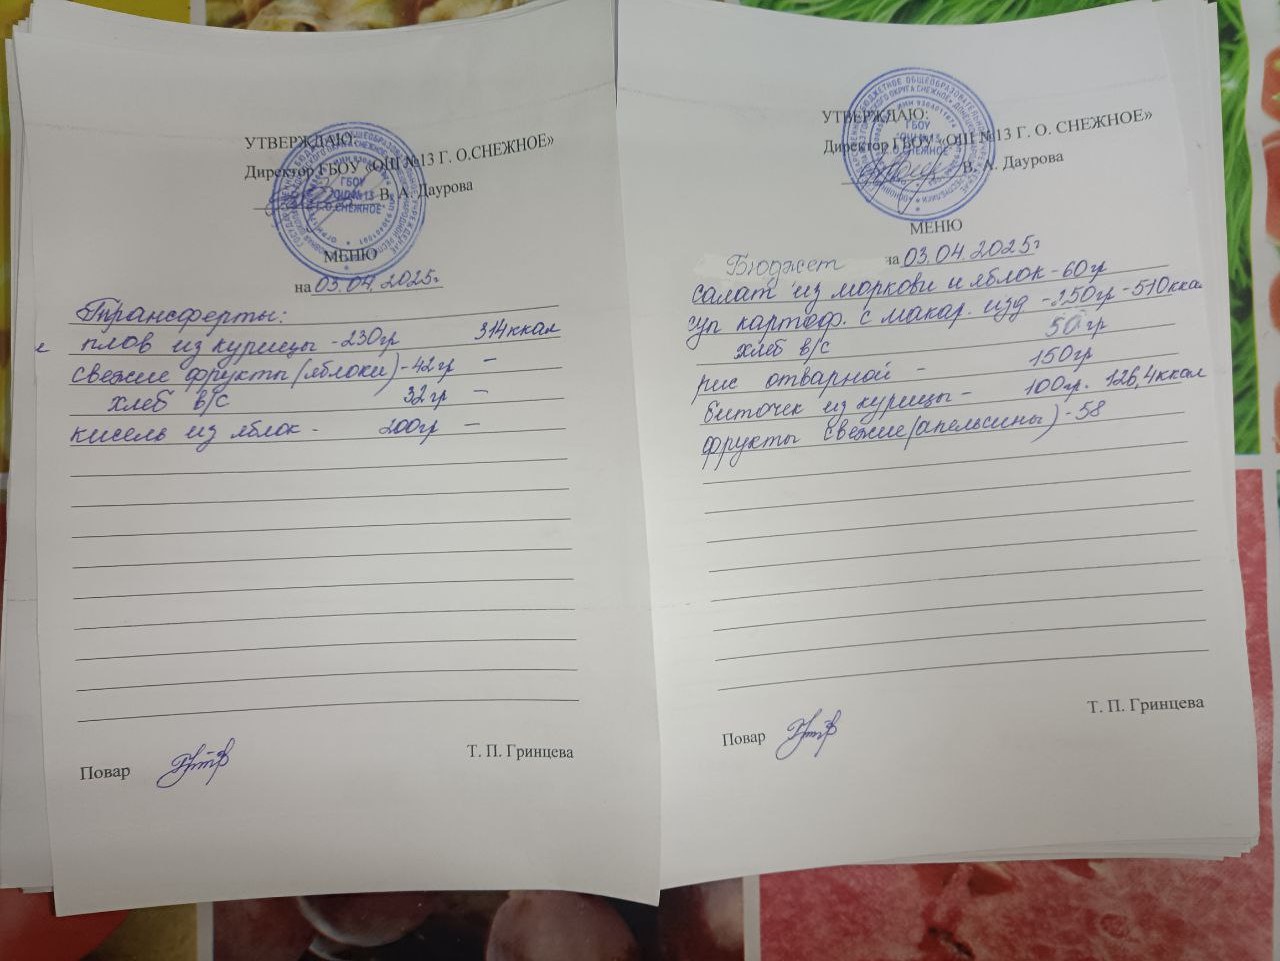 УТВЕРЖДАЮ:
Директор ГБОУ «ОШ №13 Г. О.СНЕЖНОЕ»
В. А. Даурова
ГБОУ
"ОШ №13
Г.О.СНЕЖНОЕ"
МЕНЮ
на 03.04.2025г
Трансферты:
плов из курицы - 230гр 314ккал
свежие фрукты (яблоки) - 42гр –
хлеб в/с 32гр –
кисель из яблок - 200гр –
Повар
Т. П. Гринцева
УТВЕРЖДАЮ:
Директор ГБОУ «ОШ №13 Г. О. СНЕЖНОЕ»
В. А. Даурова
ГБОУ
"ОШ №13
Г.О.СНЕЖНОЕ"
МЕНЮ
Бюджет на 03.04.2025г
салат из моркови и яблок - 60гр
суп картоф. с макар. изд - 250гр - 510ккал
хлеб в/с 50гр
рис отварной - 150гр
биточек из курицы - 100гр. 126,4ккал
фрукты свежие (апельсины) - 58
Повар
Т. П. Гринцева